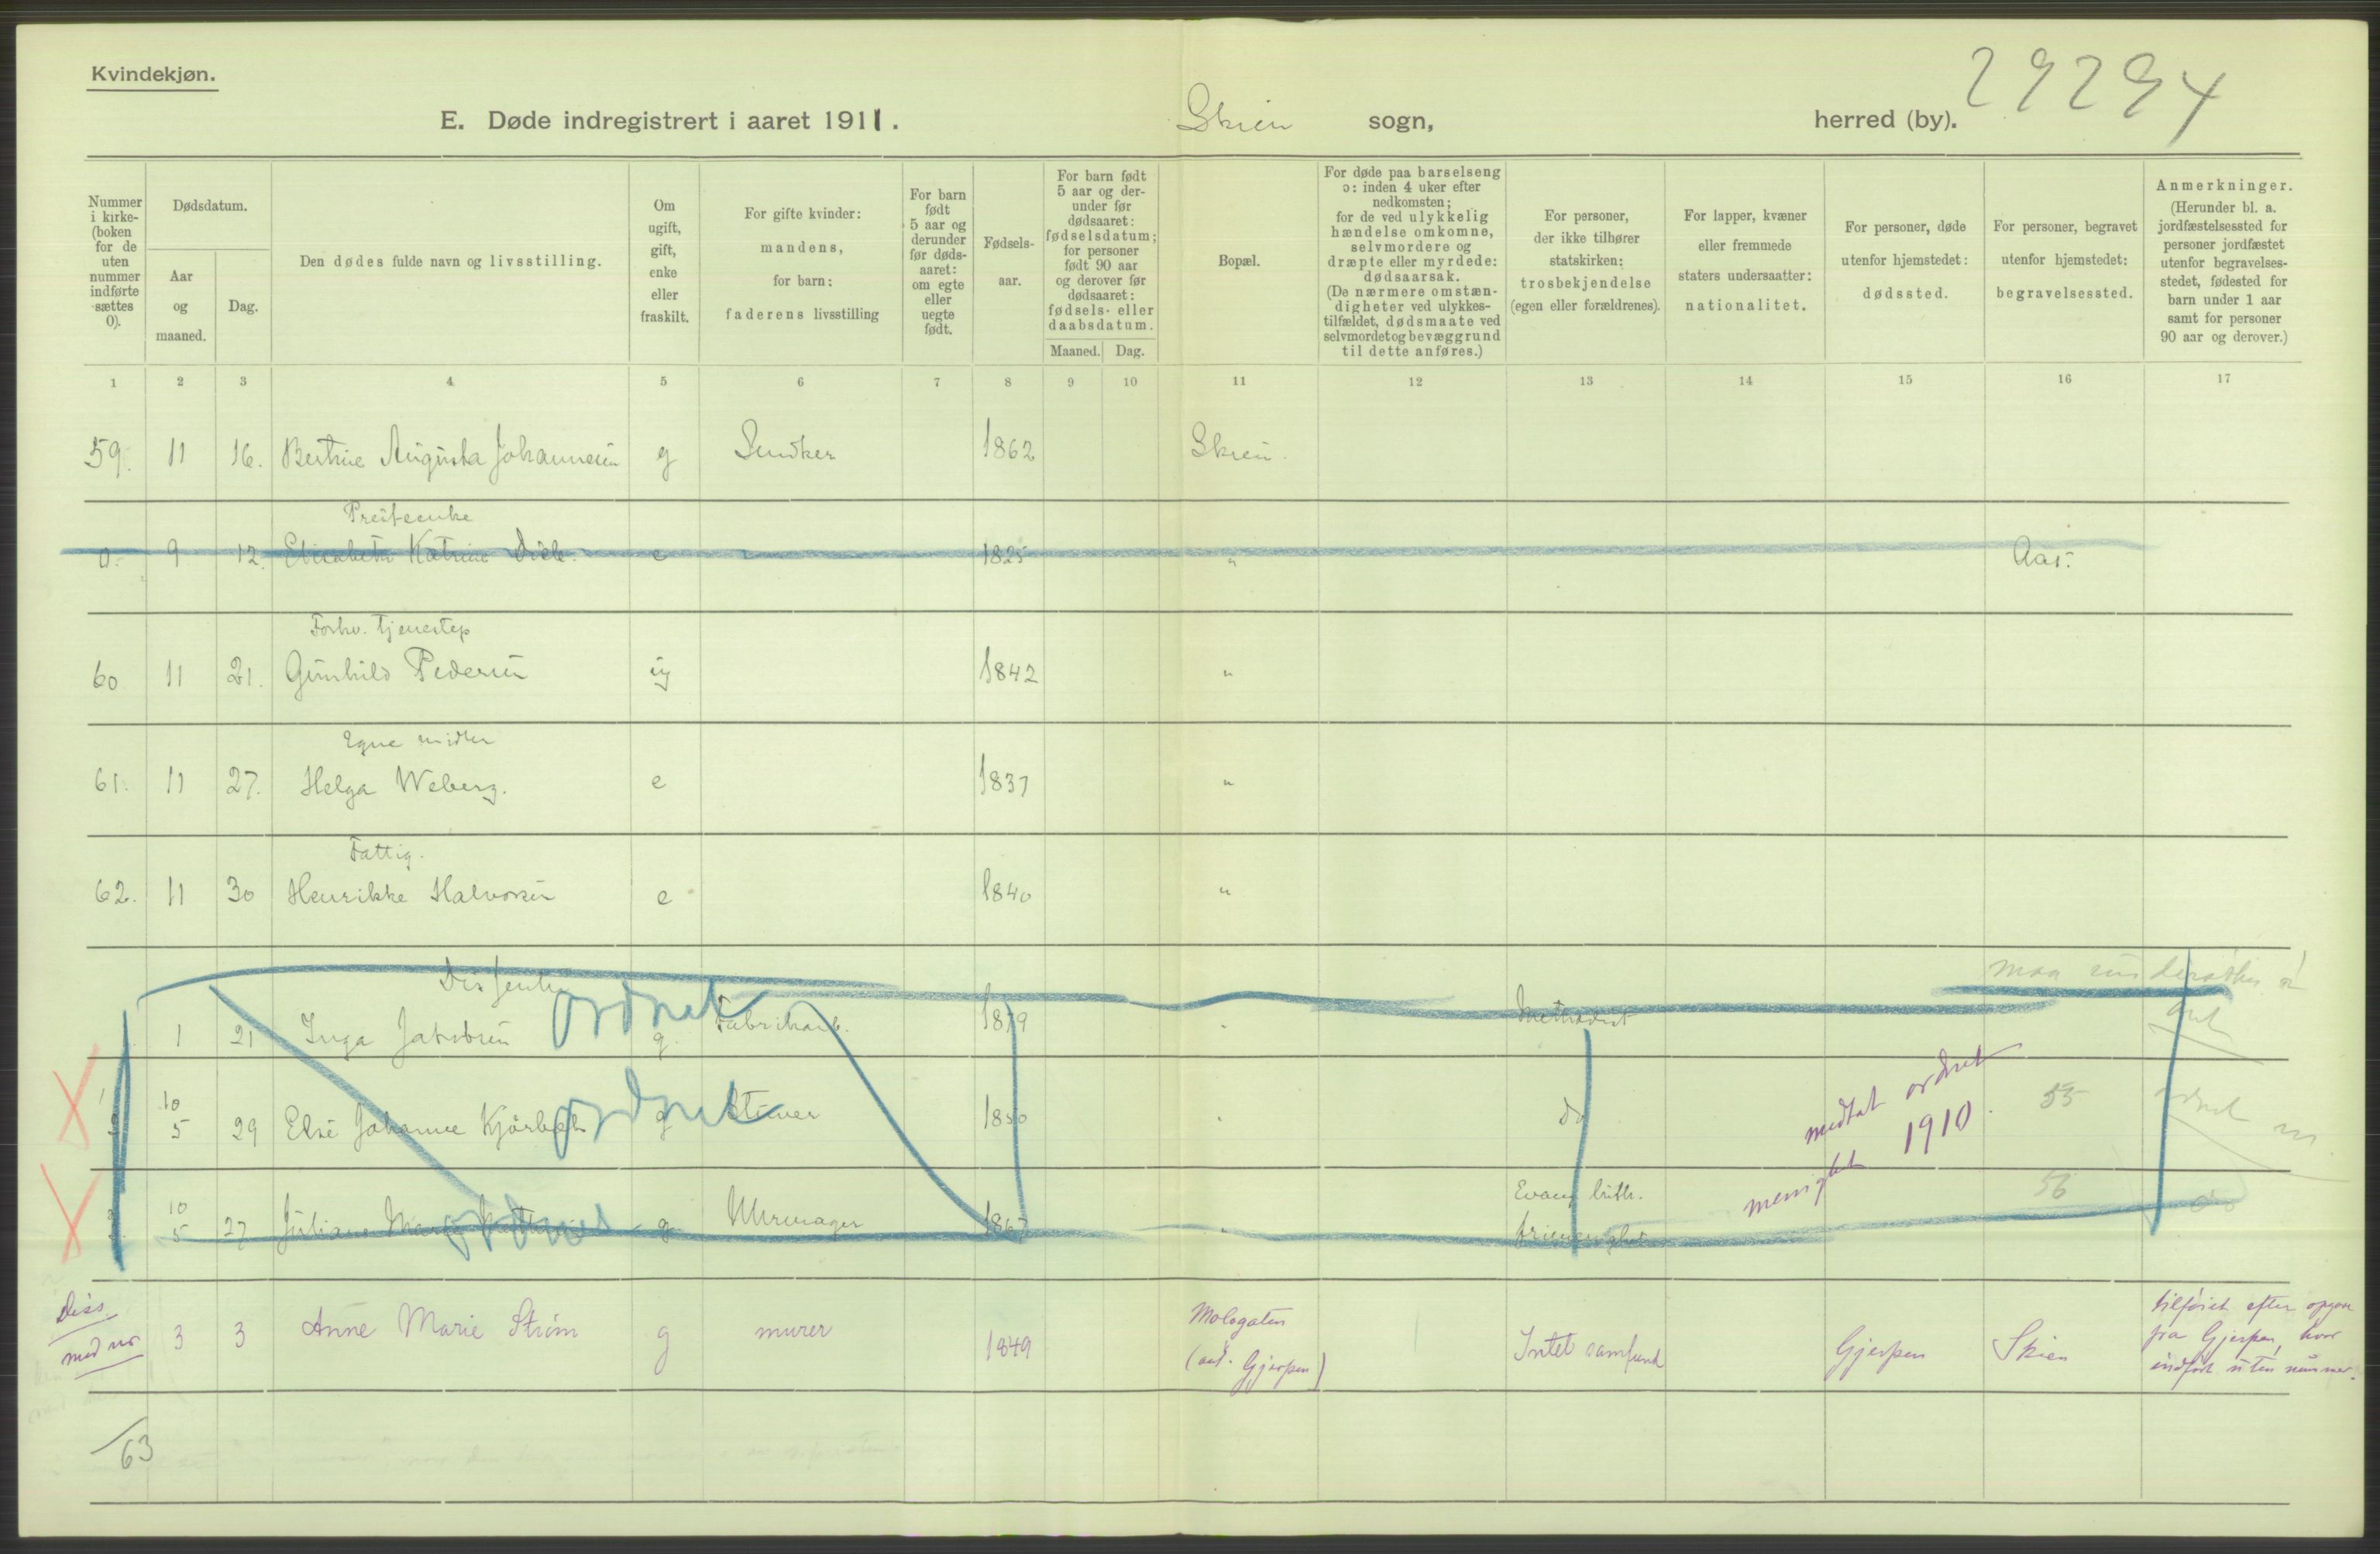 Kvindekjøn.
29294
E. Døde indregistrert i aaret 1911. Skien sogn, herred (by).
Nummer i kirke-(boken for de uten nummer indførte sættes 0).
Dødsdatum.
Aar og maaned.
Dag.
Den dødes fulde navn og livsstilling.
Om ugift, gift, enke eller fraskilt.
For gifte kvinder: mandens, for barn: faderens livsstilling
For barn født 5 aar og derunder før døds-aaret: om egte eller uegte født.
Fødsels-aar.
For barn født 5 aar og der-under før dødsaaret: fødselsdatum; for personer født 90 aar og derover før dødsaaret: fødsels- eller daabsdatum.
Maaned. Dag.
Bopæl.
For døde paa barselseng ɔ: inden 4 uker efter nedkomsten; for de ved ulykkelig hændelse omkomne, selvmordere og dræpte eller myrdede: dødsaarsak. (De nærmere omstæn-digheter ved ulykkes-tilfældet, dødsmaate ved selvmordet og bevæggrund til dette anføres.)
For personer, der ikke tilhører statskirken: trosbekjendelse (egen eller forældrenes).
For lapper, kvæner eller fremmede staters undersaatter: nationalitet.
For personer, døde utenfor hjemstedet: dødssted.
For personer, begravet utenfor hjemstedet: begravelsessted.
Anmerkninger. (Herunder bl. a. jordfæstelsessted for personer jordfæstet utenfor begravelses-stedet, fødested for barn under 1 aar samt for personer 90 aar og derover.)
1 2 3 4 5 6 7 8 9 10 11 12 13 14 15 16 17
59. 11 16. Bertine Augusta Johannesen g Snedker 1862 Skien.
Presteenke
0. 9 12. Elisabeth Katrine e 1825 " Aas.
Forhv. tjenestep
60 11 21. Gunhild Pedersen ug 1842 "
Egne midler
61. 11 27. Helga Weberg. e 1837 "
Fattig.
62. 11 30 Henrikke Halvorsen e 1840 "
maa
1 21 Inga Jakobsen ordnet g. Fabrikarb. 1879 " Methodist
10 5 29 Else Johanne ordnet g 1850 " do 55 ordnet
medtat ordnet
1910.
10 5 27 Juliane ordnet g Uhrmager 1867 " Evang. luth. 56
frimenighet
Diss.
med nr 3 3 Anne Marie Strøm g murer 1849 Mologaten (Gjerpen) Intet samfund Gjerpen Skien tilføiet efter opgave fra Gjerpen, hvor indført uten nummer.
63